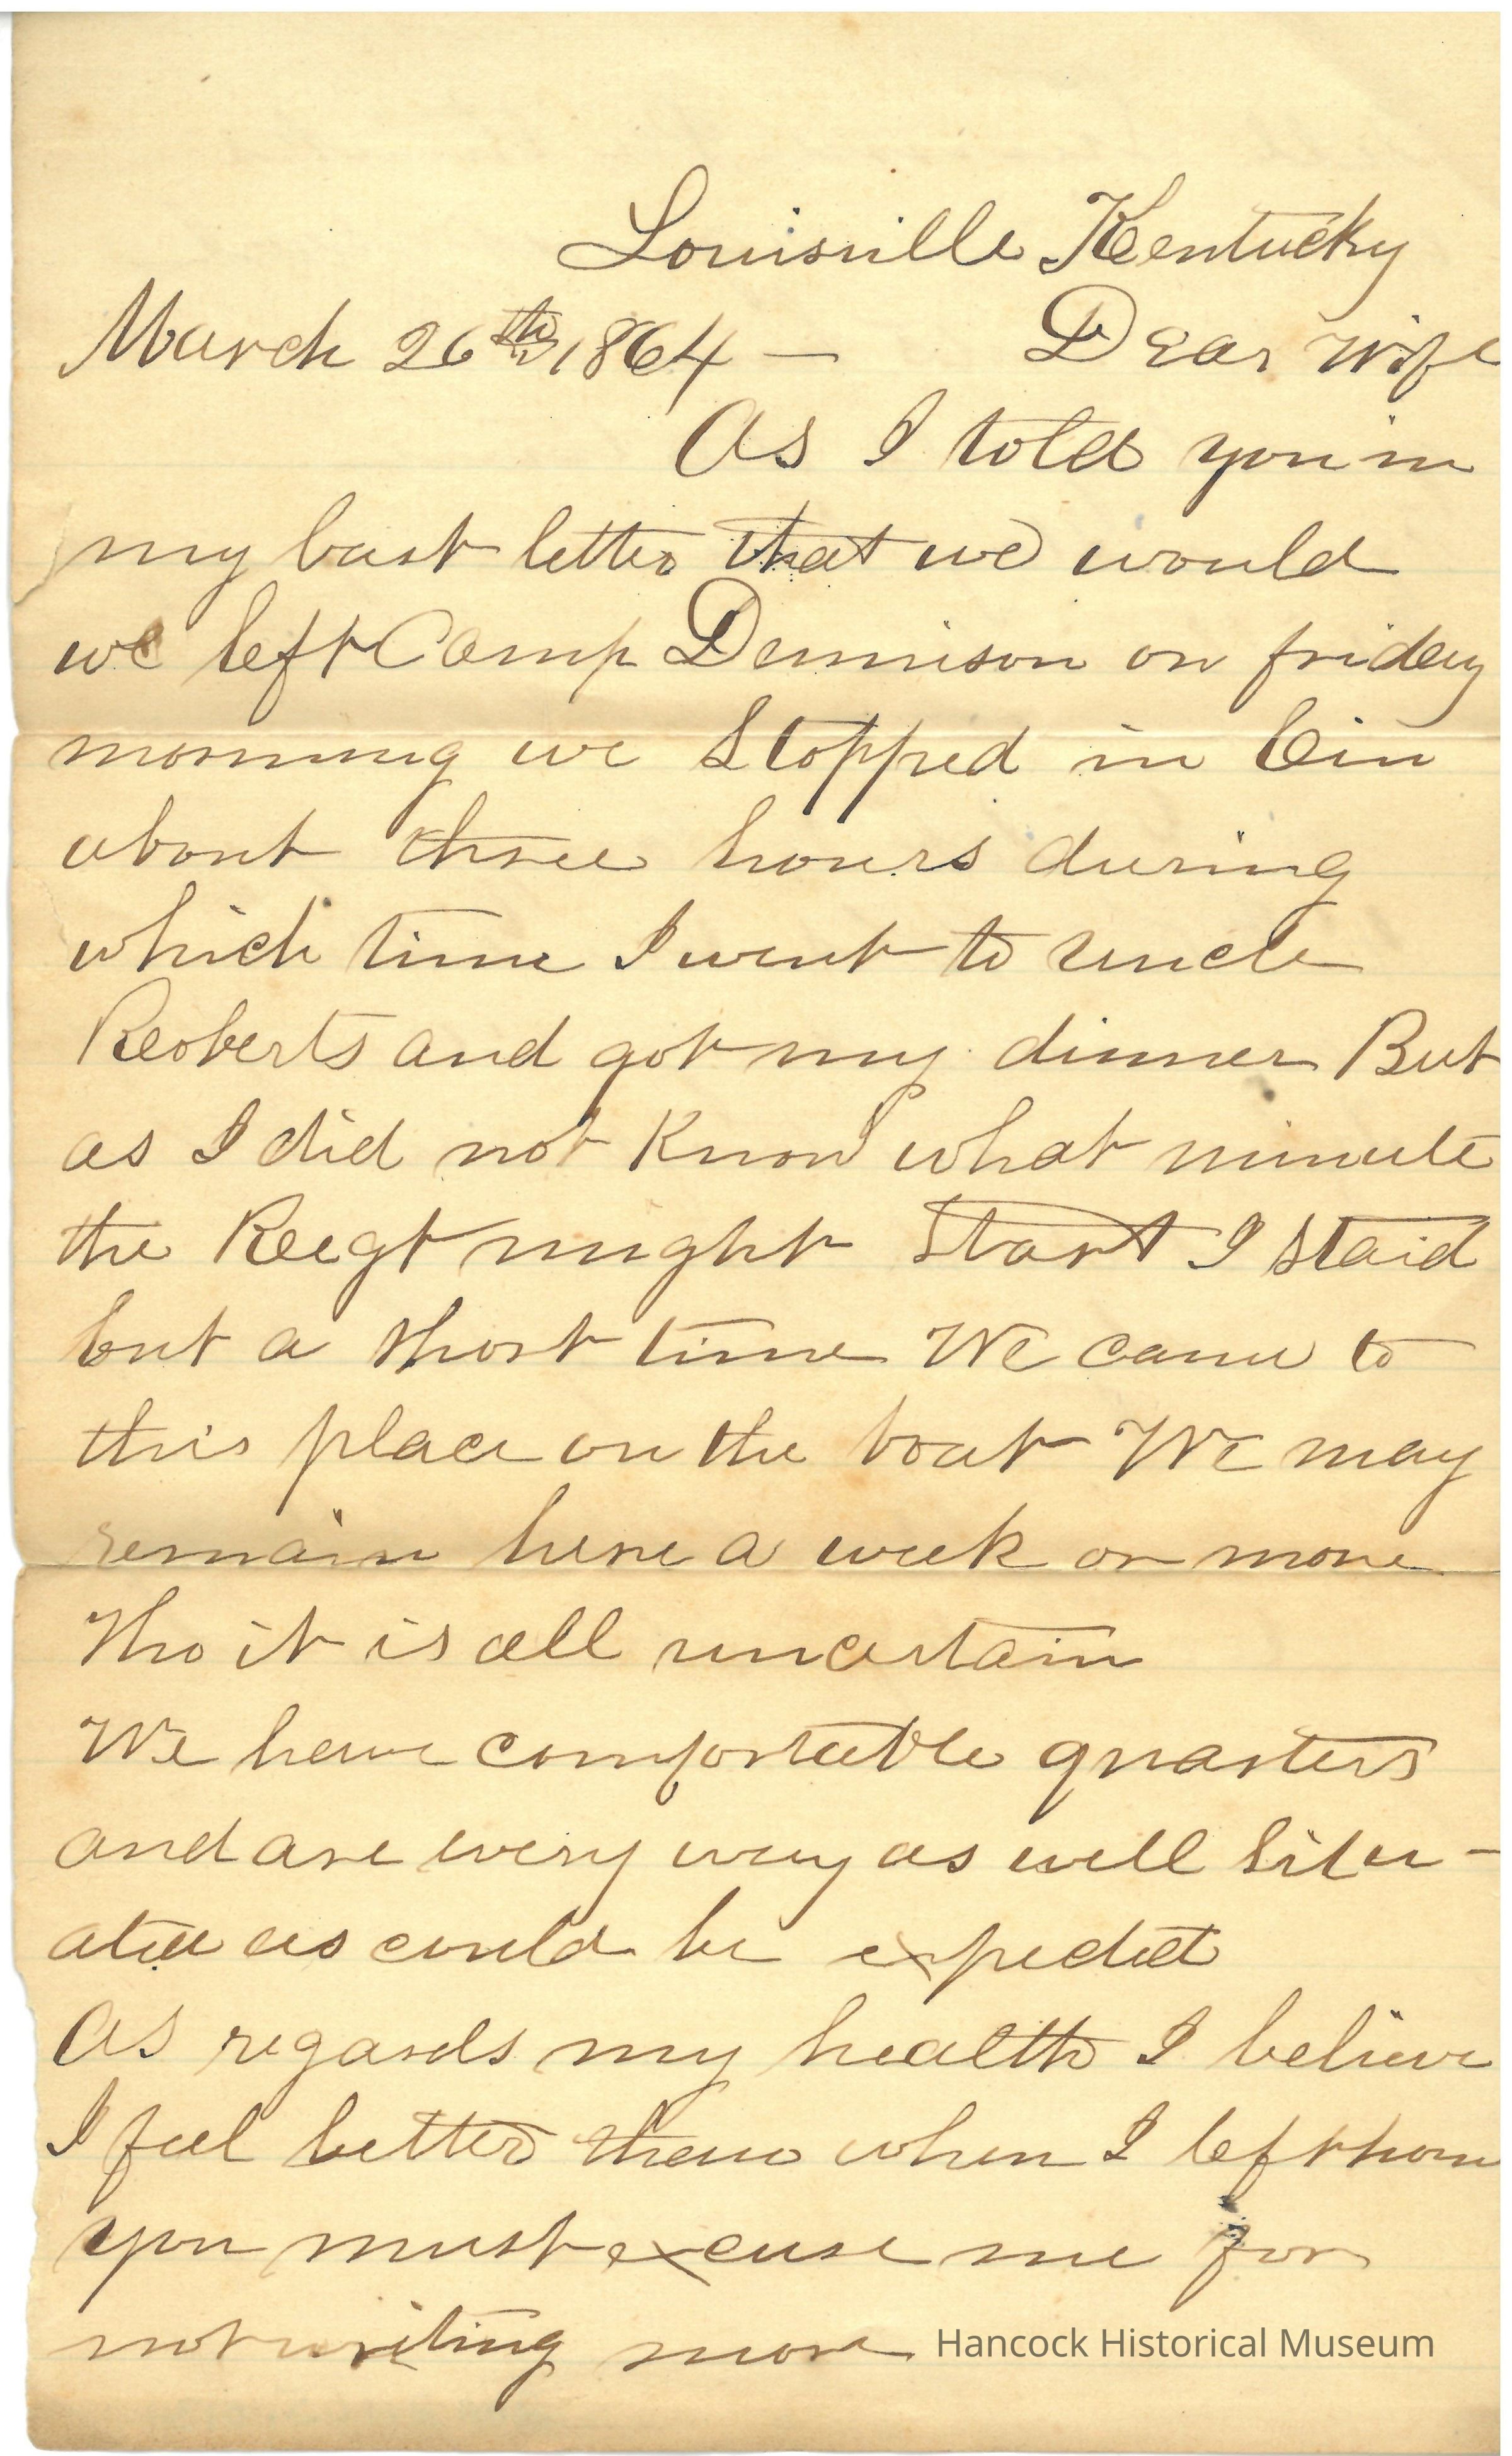 Louisville Kentucky
March 26th 1864 — Dear Wife
As I told you in
my last letter that we would
we left Camp Dennison on friday
morning we Stopped in Cin
about three hours during
which time I went to Uncle
Roberts and got my dinner But
as I did not Know what minute
the Regt might Start I staid
but a short time We came to
this place on the boat We may
remain here a week or more
Tho it is all uncertain
We have comfortable quarters
and are every way as well Situ-
ated as could be expected
As regards my health I believe
I feel better than when I left home
you must excuse me for
not writing more
Hancock Historical Museum